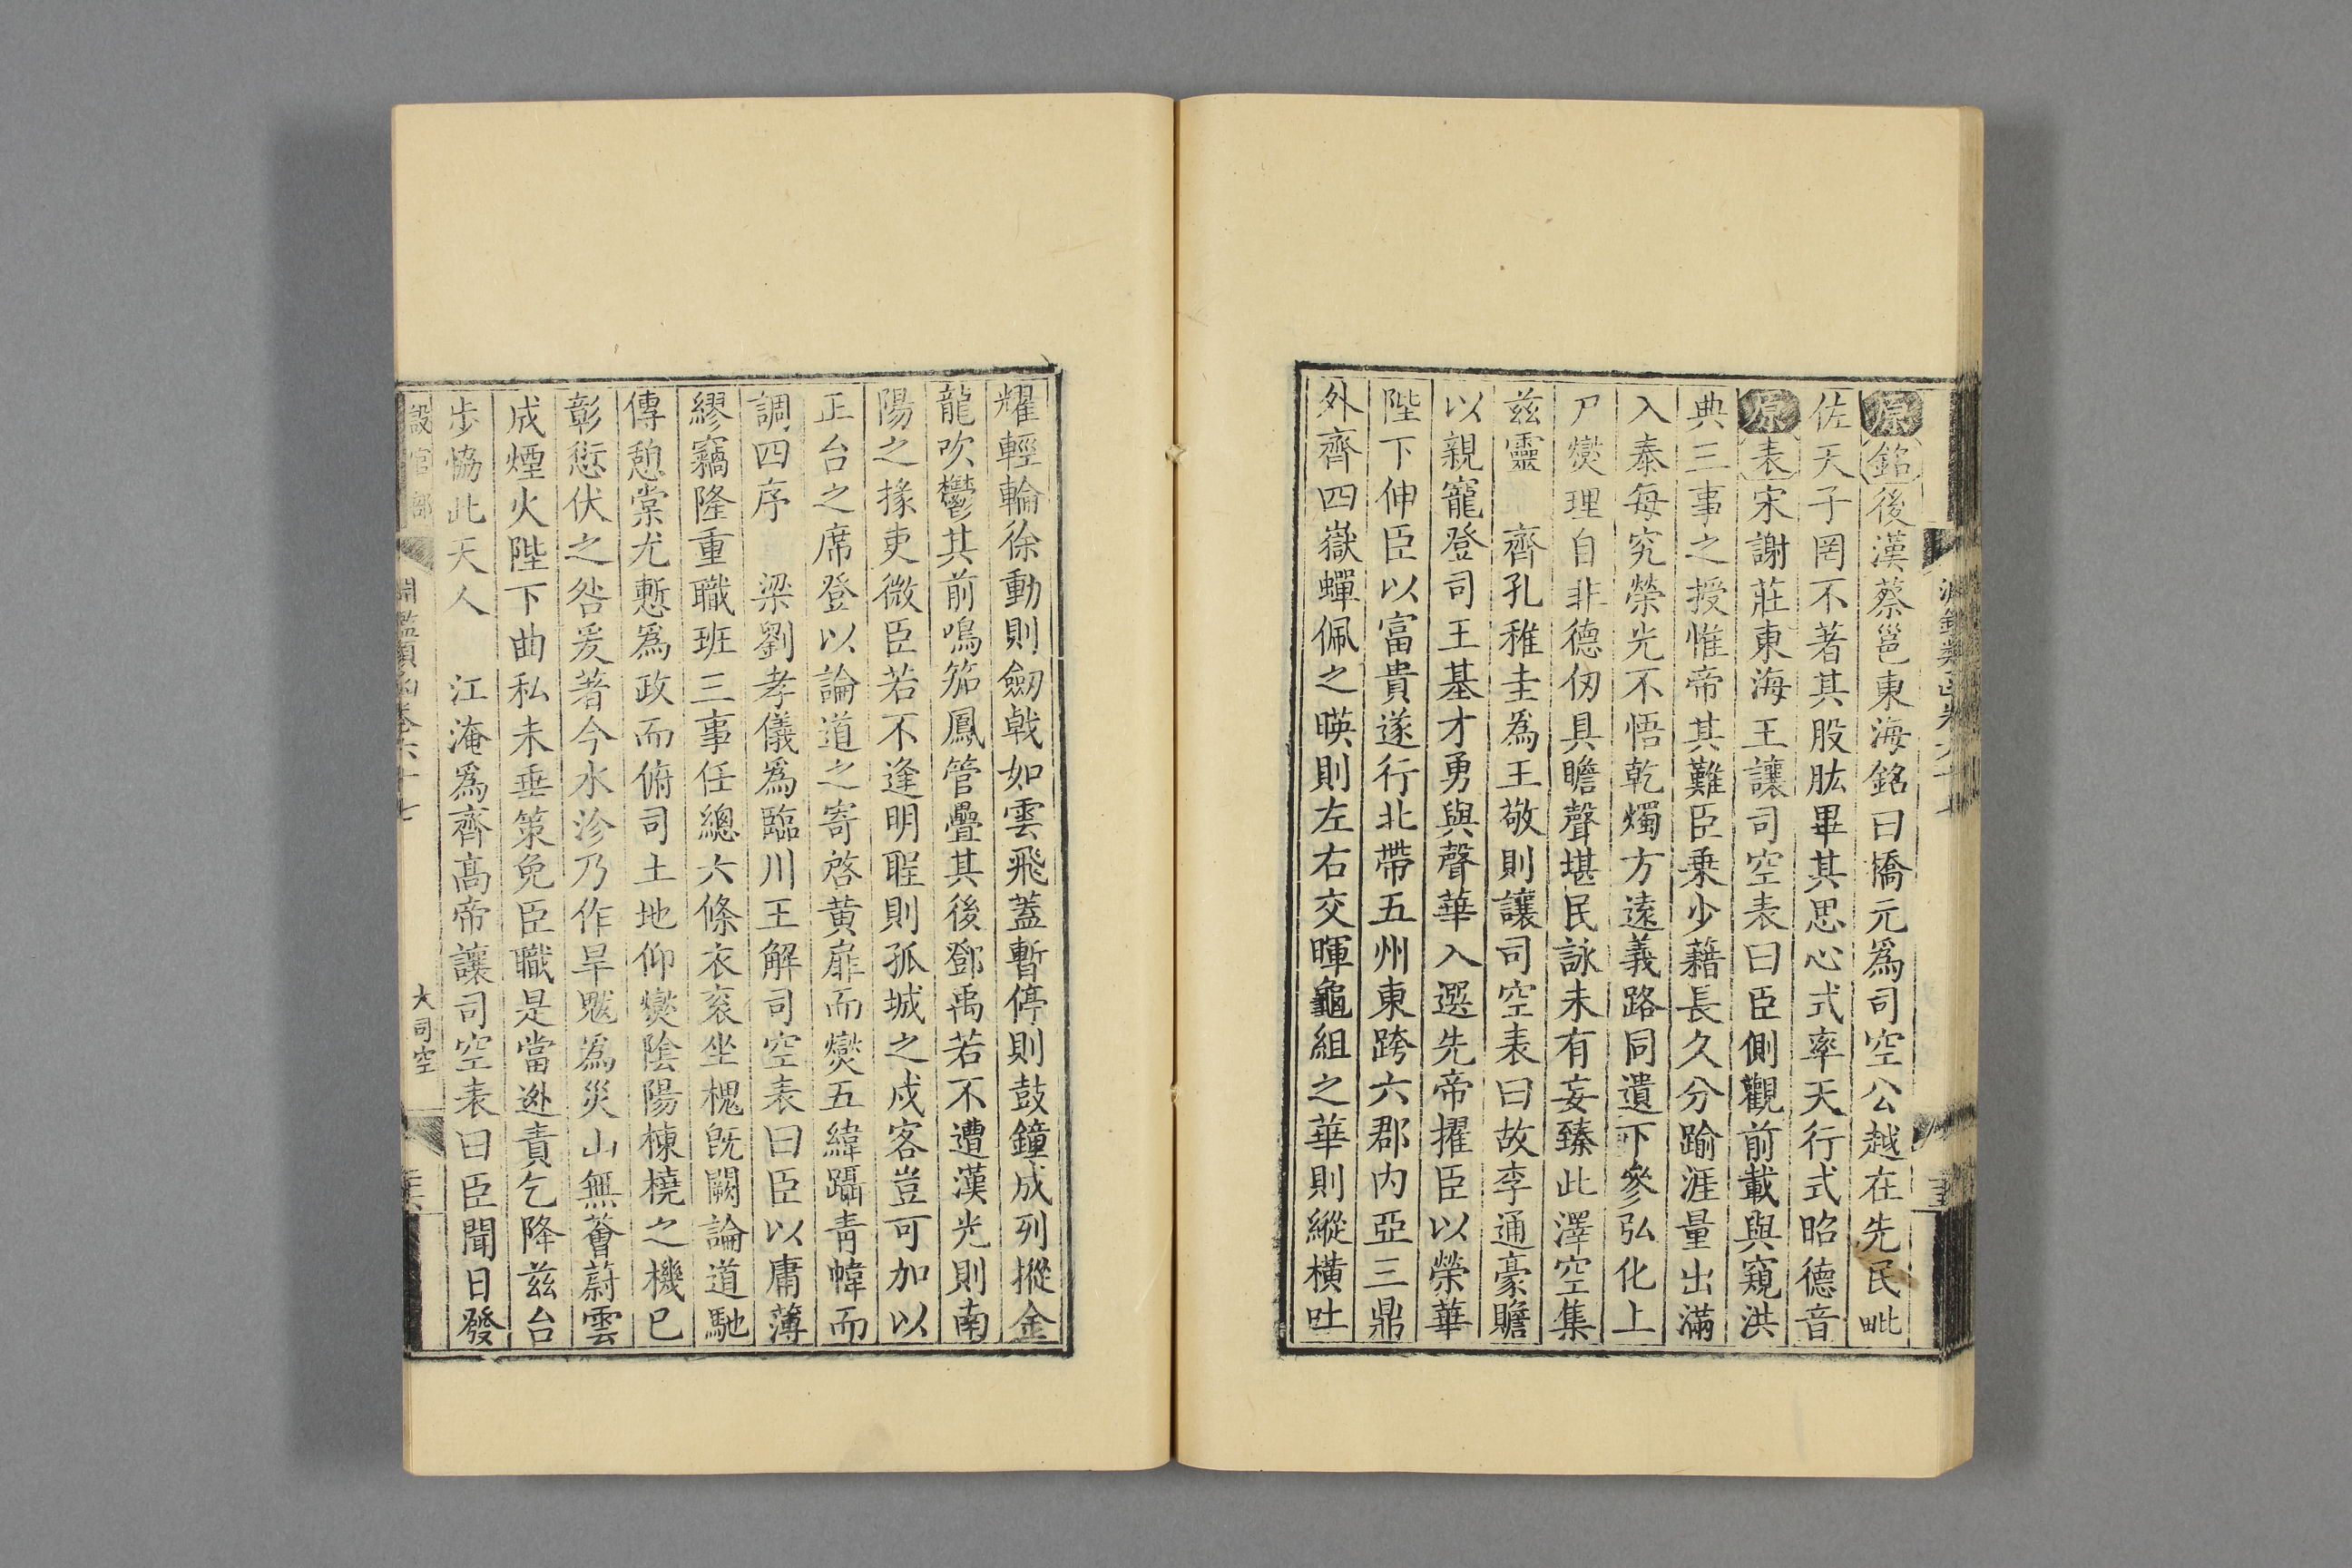 原銘後漢蔡邕東海銘曰橋元爲司空公越在先民毗
佐天子罔不著其股肱畢其思心式率天行式昭德音
原表宋謝莊東海王讓司空表曰臣側觀前載與窺洪
典三事之授惟帝其難臣乗少藉長久分踰涯量出滿
入泰每究榮光不悟乾燭方遠義路同遺下參弘化上
尸燮理自非德仞具瞻聲堪民詠未有妄臻此澤空集
兹靈　齊孔稚圭爲王敬則讓司空表曰故李通豪贍
以親寵登司王基才勇與聲華入選先帝擢臣以榮華
陛下伸臣以富貴遂行北帶五州東跨六郡内亞三鼎
外齊四嶽蟬佩之暎則左右交暉龜組之華則縱橫吐
耀輕輪徐動則劒戟如雲飛蓋暫停則鼓鐘成列摐金
龍吹鬱其前鳴笳鳳管疊其後鄧禹若不遭漢光則南
陽之掾吏微臣若不逢明聖則孤城之戍客豈可加以
正台之席登以論道之寄啓黄扉而燮五緯躡青幃而
調四序　梁劉孝儀爲臨川王解司空表曰臣以庸薄
繆竊隆重職班三事任總六條衣衮坐槐旣闕論道馳
傳憩棠尤慙爲政而俯司土地仰燮陰陽棟橈之機已
彰愆伏之咎爰著今水沴乃作旱魃爲災山無薈蔚雲
成煙火陛下曲私未垂策免臣職是當逊責乞降兹台
步恊此天人　江淹爲齊髙帝讓司空表曰臣聞日發
設官部　淵鑑類函卷六十七　大司空